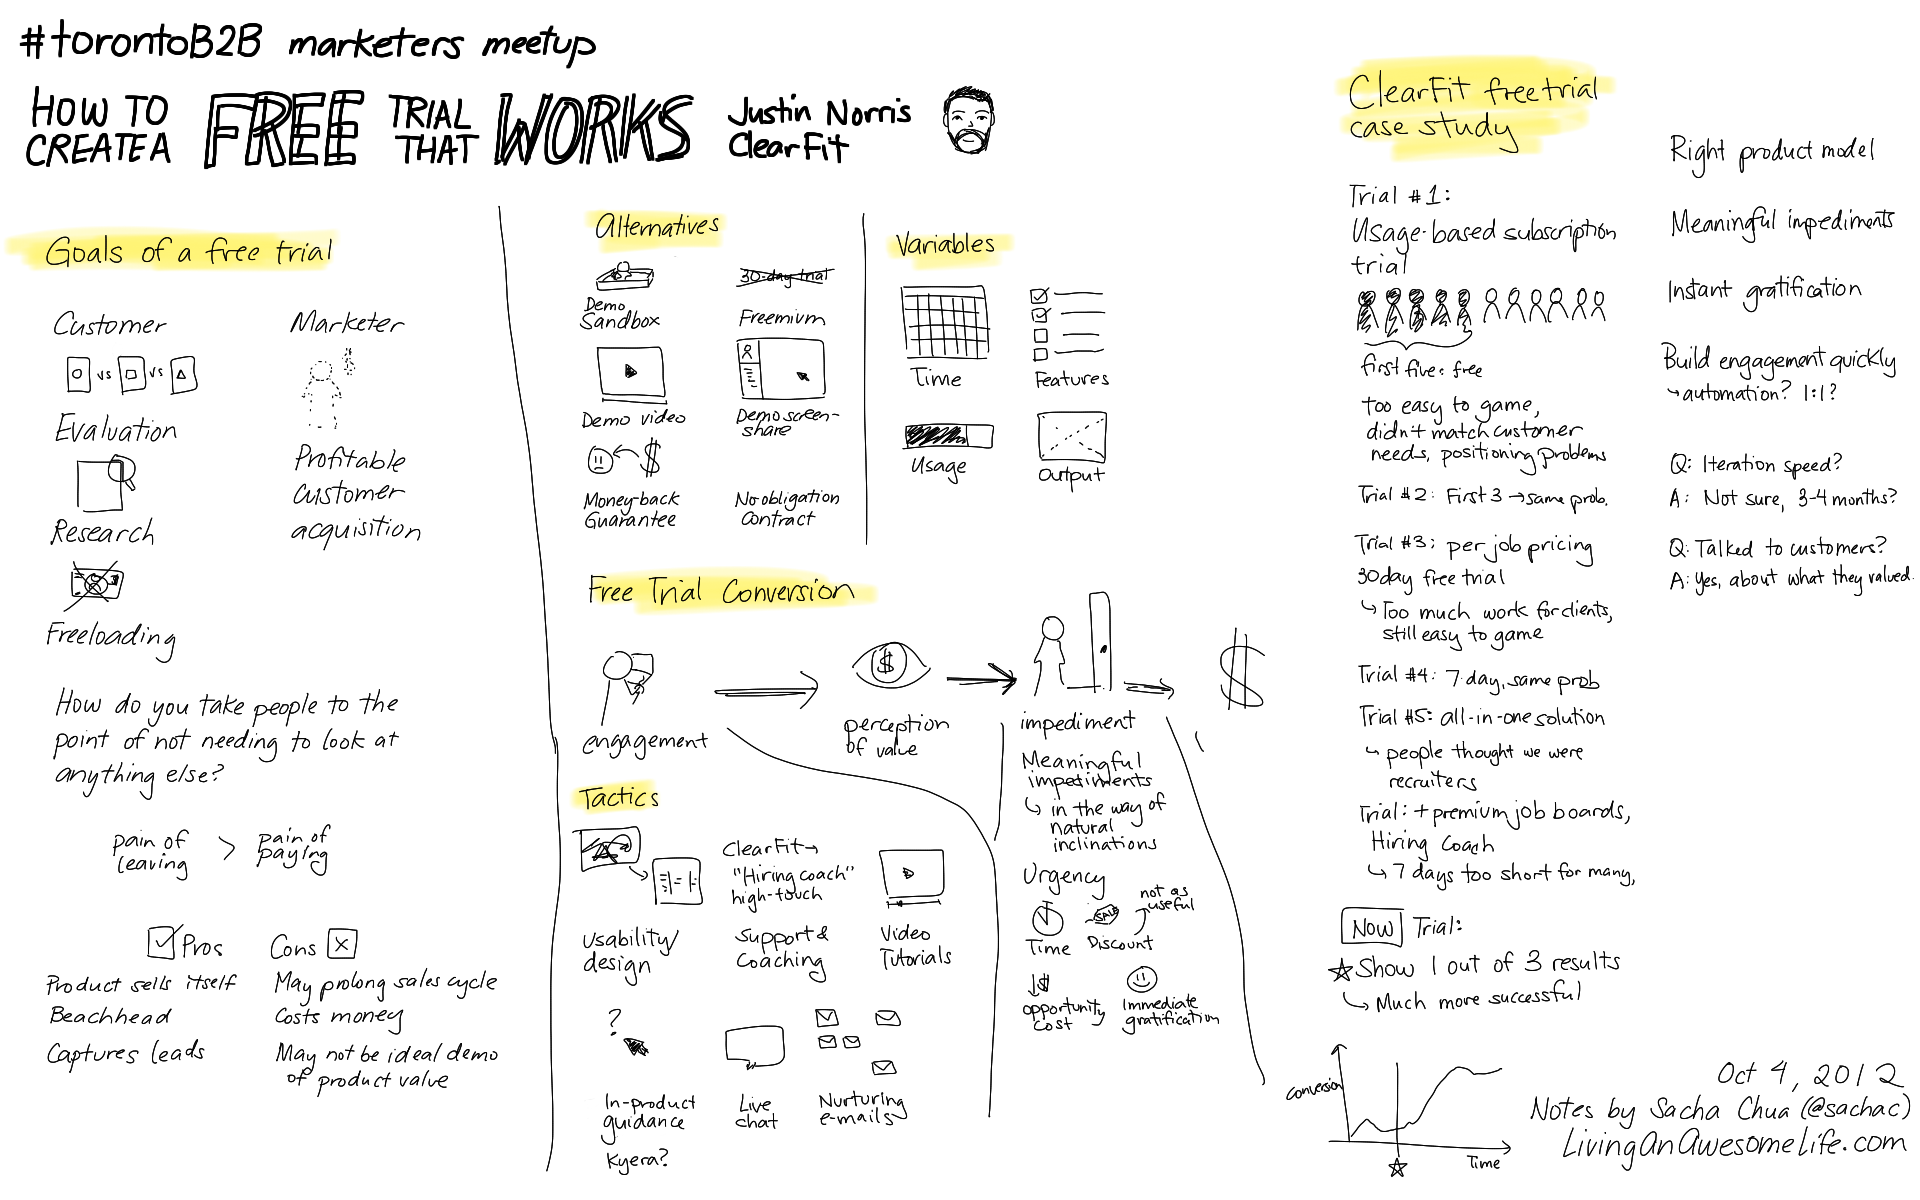 #torontoB2B marketers meetup
HOW TO CREATE A FREE TRIAL THAT WORKS
Justin Norris
ClearFit
Goals of a free trial
Customer
vs vs
Evaluation
Research
Freeloading
Marketer
Profitable
customer
acquisition
How do you take people to the
point of not needing to look at
anything else?
pain of
leaving
>
pain of
paying
Pros
Product sells itself
Beachhead
Captures leads
Cons
May prolong sales cycle
Costs money
May not be ideal demo
of product value
Alternatives
Demo
Sandbox
30-day trial
Freemium
Demo video
Demo screen-
share
$
Money-back
Guarantee
No obligation
contract
Variables
Time
Features
Usage
Output
Free Trial Conversion
engagement
$
perception
of value
impediment
$
Meaningful
impediments
in the way of
natural
inclinations
Urgency
Time
SALE
Discount
not as
useful
$
opportunity
cost
Immediate
gratification
Tactics
Usability/
design
ClearFit→
"Hiring coach"
high-touch
Support &
Coaching
Video
Tutorials
?
In-product
guidance
Kyera?
Live
chat
Nurturing
e-mails
ClearFit free trial
case study
Trial #1:
Usage-based subscription
trial
first five: free
too easy to game,
didn't match customer
needs, positioning problems
Trial #2: First 3 → same prob.
Trial #3: per job pricing
30 day free trial
Too much work for clients,
still easy to game
Trial #4: 7-day, same prob
Trial #5: all-in-one solution
people thought we were
recruiters
Trial: + premium job boards,
Hiring Coach
7 days too short for many,
Now Trial:
Show 1 out of 3 results
Much more successful
conversion
Time
Right product model
Meaningful impediments
Instant gratification
Build engagement quickly
automation? 1:1?
Q: Iteration speed?
A: Not sure, 3-4 months?
Q: Talked to customers?
A: Yes, about what they valued.
Oct 4, 2012
Notes by Sacha Chua (@sachac)
LivingAnAwesomeLife.com